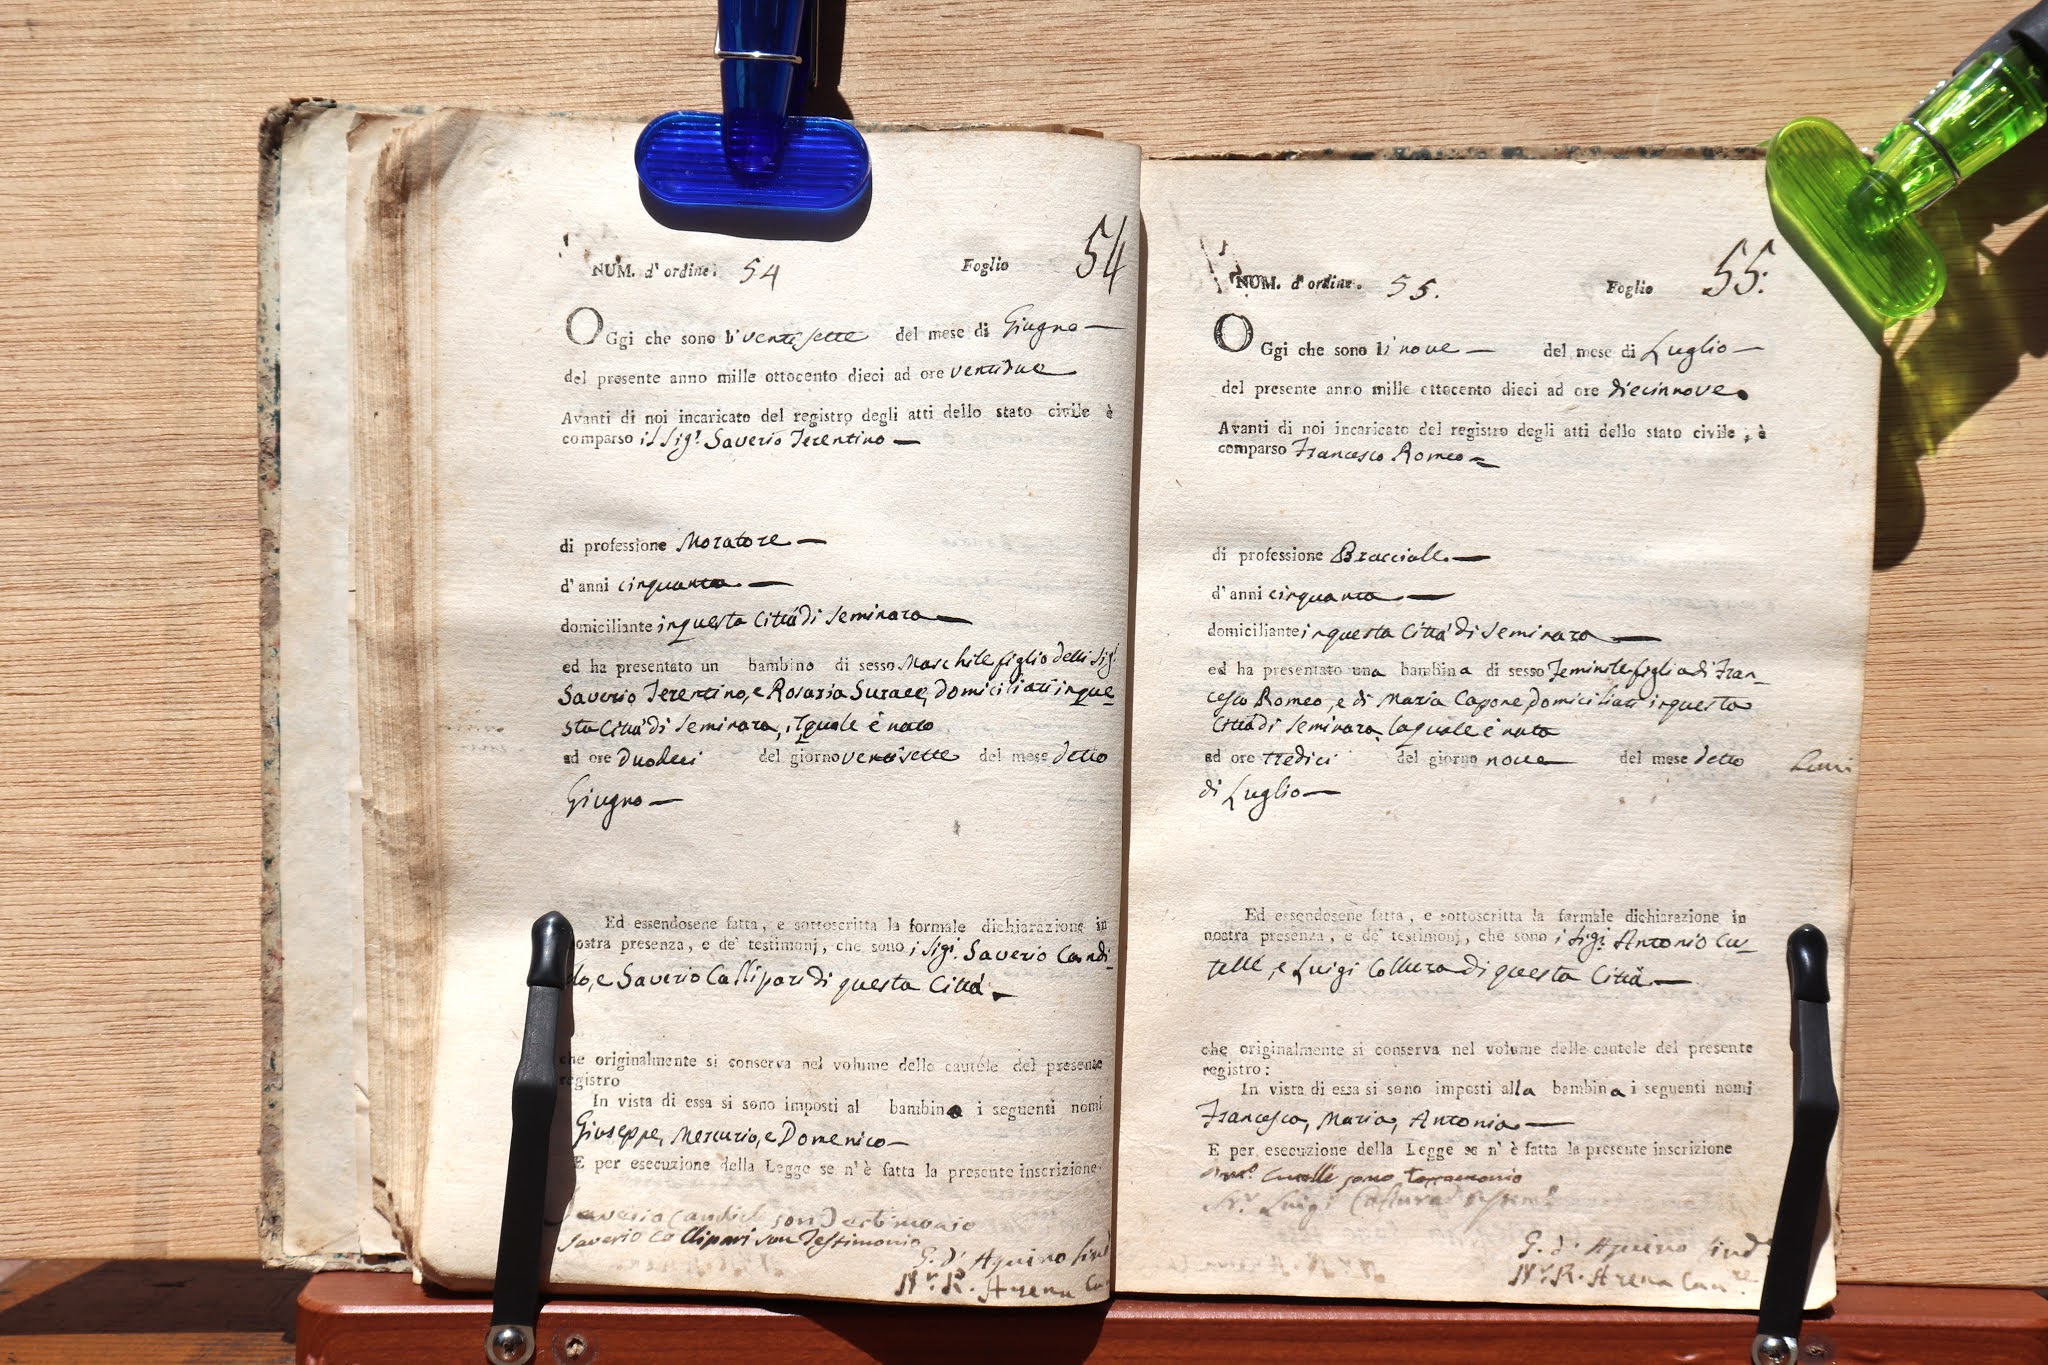 NUM. d' ordine: 54 Foglio 54
OGgi che sono li ventisette del mese di Giugno
del presente anno mille ottocento dieci ad ore ventidue
Avanti di noi incaricato del registro degli atti dello stato civile è
comparso il Sig.r Saverio Terentino
di professione Moratore
d'anni cinquanta
domiciliante in questa Città di Seminara
ed ha presentato un bambino di sesso Maschile figlio delli Sig.
Saverio Terentino, e Rosaria Surace, domiciliati in que
sta Città di Seminara, il quale è nato
ad ore Duodeci del giorno ventisette del mese detto
Giugno
Ed essendosene fatta, e sottoscritta la formale dichiarazione in
nostra presenza, e de' testimonj, che sono i Sig.i Saverio Candi
do, e Saverio Callipari di questa Città
che originalmente si conserva nel volume delle cautele del presente
registro
In vista di essa si sono imposti al bambino i seguenti nomi
Giuseppe, Mercurio, e Domenico
E per esecuzione della Legge se n' è fatta la presente inscrizione
Saverio Candido son Testimonio
Saverio Callipari son Testimonio
G. d' Aquino Sind
N.r R. Arena
NUM. d' ordine. 55. Foglio 55.
OGgi che sono li nove del mese di Luglio
del presente anno mille ottocento dieci ad ore diecinnove
Avanti di noi incaricato del registro degli atti dello stato civile, è
comparso Francesco Romeo
di professione Bracciale
d' anni cinquanta
domiciliante in questa Città di Seminara
ed ha presentato una bambina di sesso Feminile figlia di Fran-
cesco Romeo, e di Maria Capone, domiciliati in questa
Città di Seminara, la quale è nata
ad ore tredici del giorno nove del mese detto
di Luglio
Ed essendosene fatta, e sottoscritta la formale dichiarazione in
nostra presenza, e de' testimonj, che sono i Sig.i Antonio Cu-
tellè, e Luigi Collura di questa Città
che originalmente si conserva nel volume delle cautele del presente
registro:
In vista di essa si sono imposti alla bambina i seguenti nomi
Francesca, Maria, Antonia
E per esecuzione della Legge se n' è fatta la presente inscrizione
Cutellè sono testimonio
Luigi Collura
G. d' Aquino Sind
N.r R. Arena Can.re